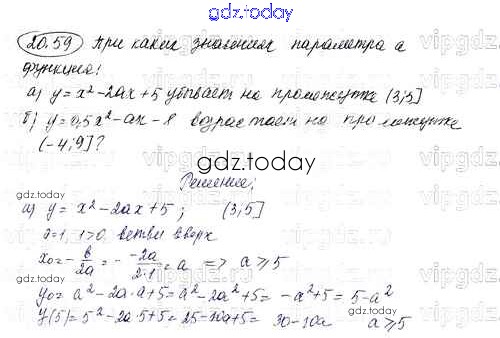 gdz.today
20.59 При каких значениях параметра a
функция:
а) y = x² - 2ax + 5 убывает на промежутке (3;5]
б) y = 0,5x² - ax - 8 возрастает на промежутке
(-4;9]?
gdz.today
Решение:
gdz.today
а) y = x² - 2ax + 5; (3;5]
a=1, 1>0, ветви вверх
x₀ = -b/2a = - -2a/2·1 = a => a ≥ 5
y₀ = a² - 2a·a + 5 = a² - 2a² + 5 = -a² + 5 = 5 - a²
y(5) = 5² - 2a·5 + 5 = 25 - 10a + 5 = 30 - 10a a ≥ 5
gdz.today
gdz.today